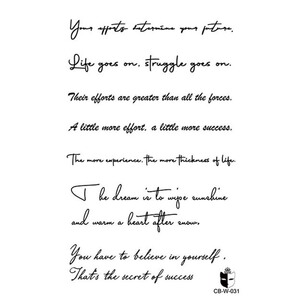 Your efforts determine your future.
Life goes on, struggle goes on.
Their efforts are greater than all the forces.
A little more effort, a little more success.
The more experience, the more thickness of life.
The dream is to wipe sunshine
and warm a heart after snow.
You have to believe in yourself .
That's the secret of success
CB-W-031